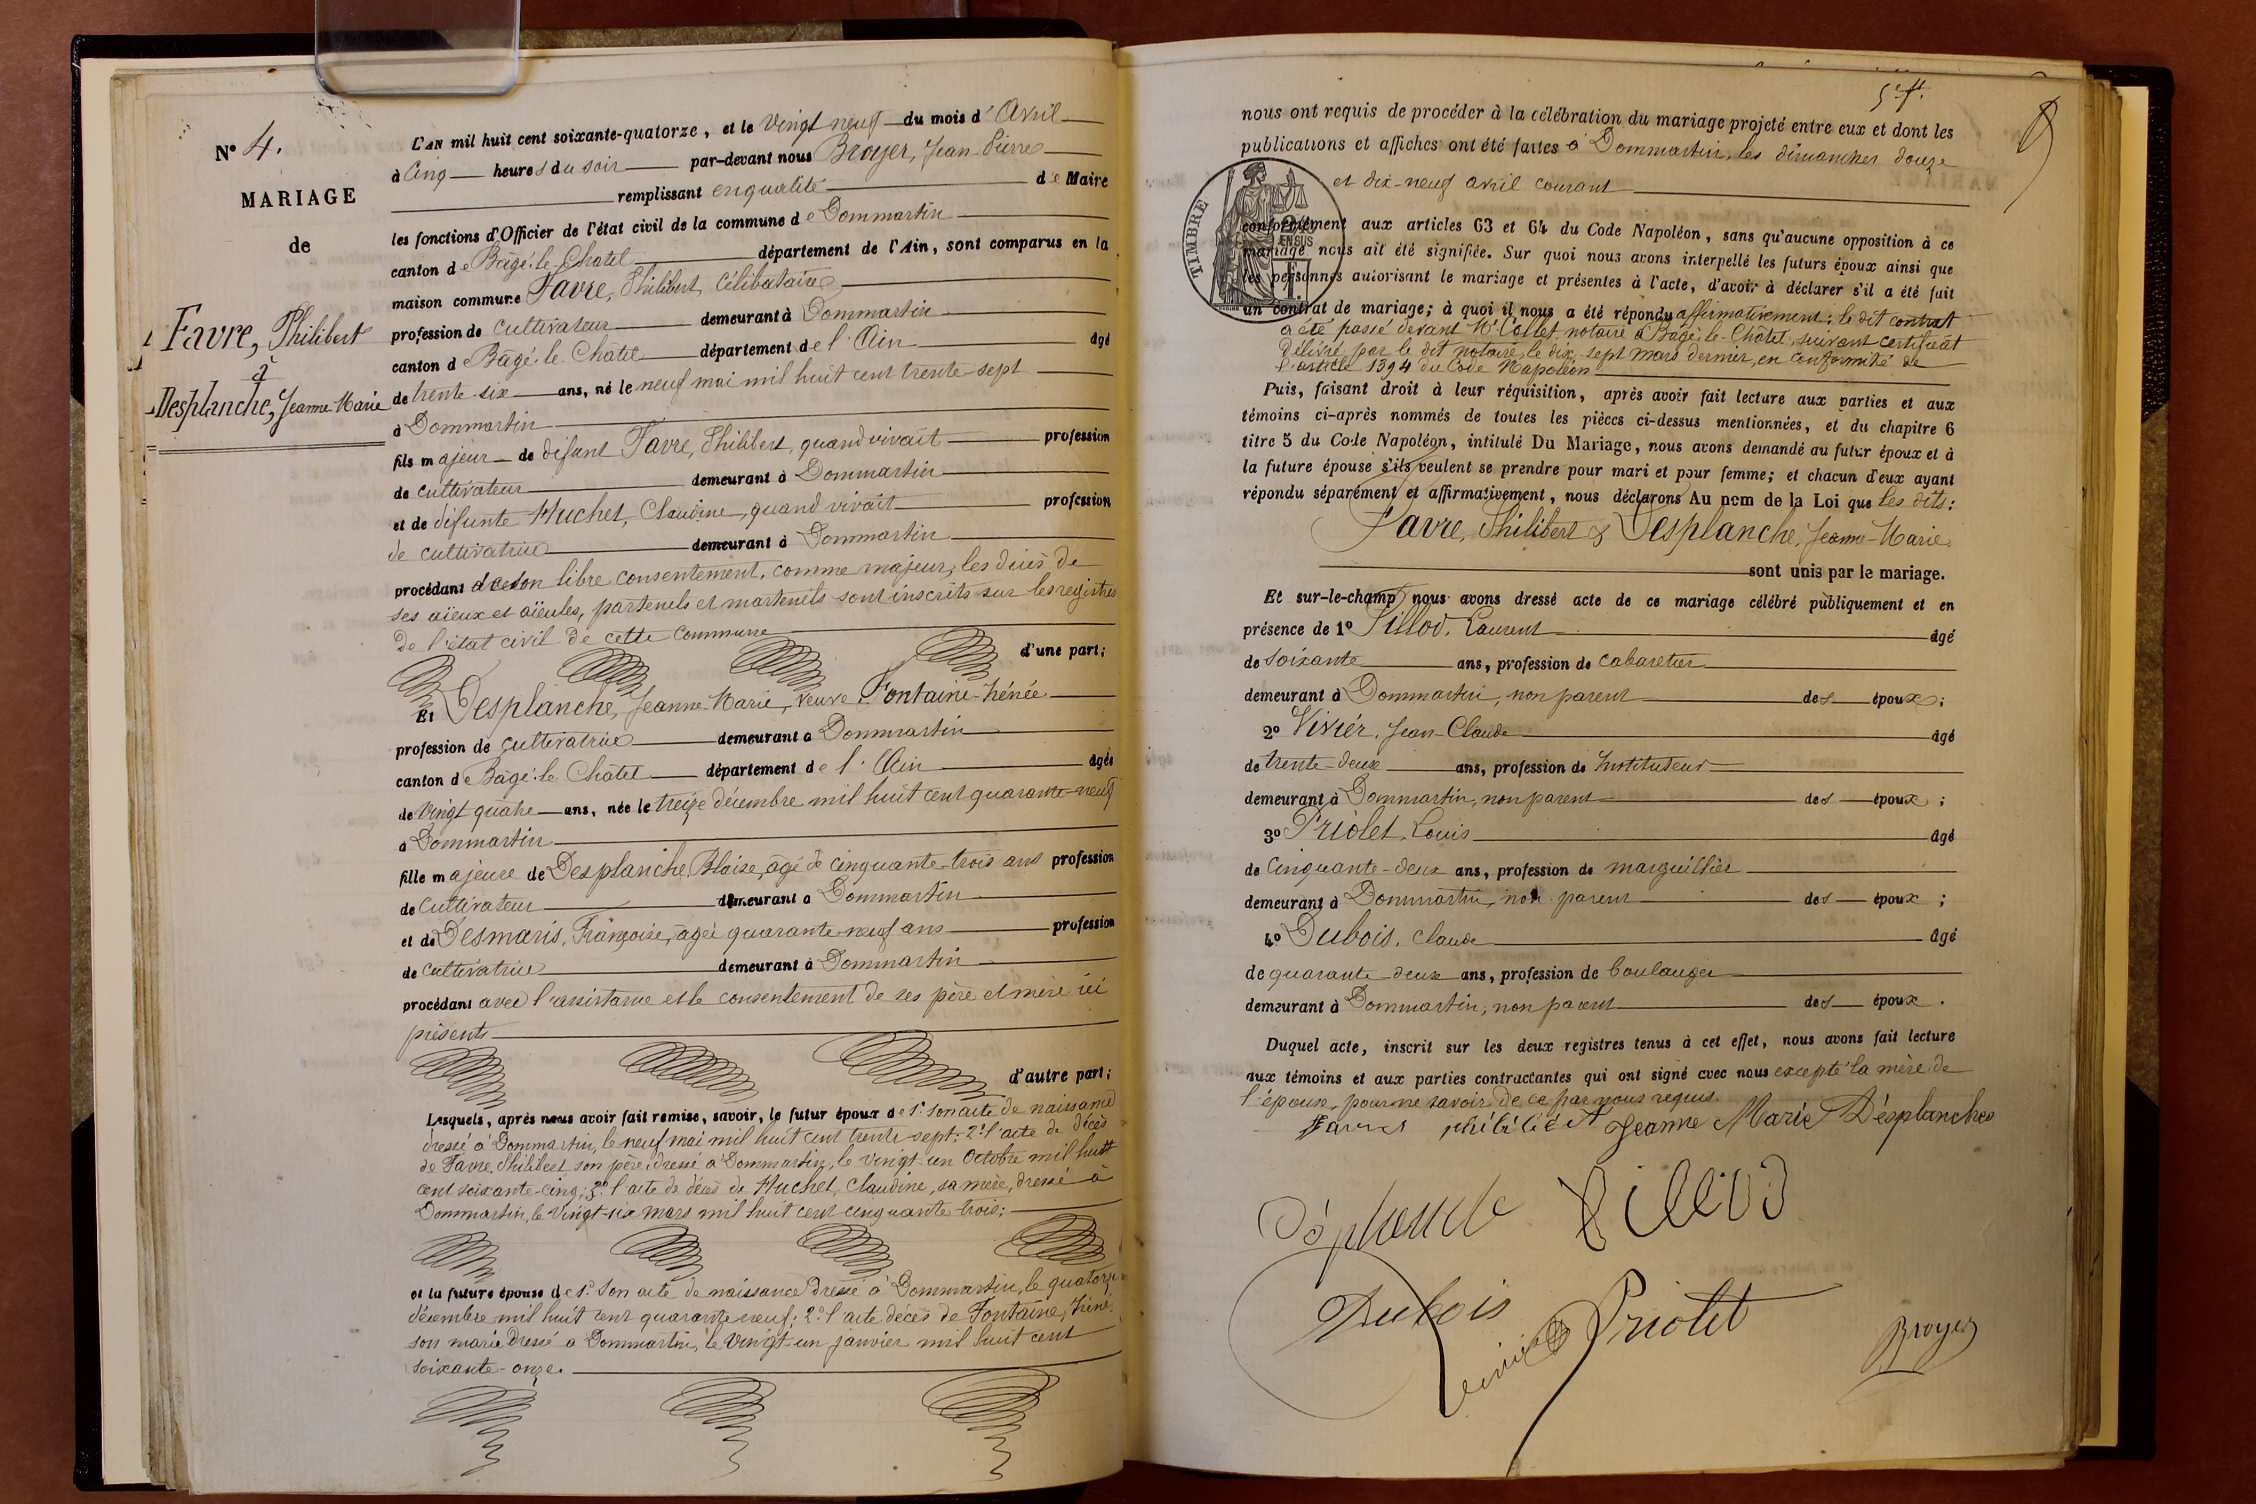 N° 4.
MARIAGE
de
Favre, Philibert
à
Desplanche, Jeanne Marie
L'AN mil huit cent soixante-quatorze, et le Vingt neuf du mois d'Avril
à Cinq heures du soir par-devant nous Broyer, Jean-Pierre
remplissant en qualité de Maire
les fonctions d'Officier de l'état civil de la commune de Dommartin
canton de Bâgé-le-Châtel département de l'Ain, sont comparus en la
maison commune Favre, Philibert, Célibataire
profession de cultivateur demeurant à Dommartin
canton de Bâgé-le-Châtel département de l'Ain âgé
de trente six ans, né le neuf mai mil huit cent trente-sept
à Dommartin
fils majeur de défunt Favre, Philibert, quand vivait profession
de cultivateur demeurant à Dommartin
et de défunte Huchet, Claudine, quand vivait profession
de cultivatrice demeurant à Dommartin
procédant de son libre consentement, comme majeur, les décès de
ses aïeux et aïeules, paternels et maternels sont inscrits sur les registres
de l'état civil de cette commune
d'une part;
Et Desplanche, Jeanne-Marie, veuve Fontaine-Hénée
profession de cultivatrice demeurant à Dommartin
canton de Bâgé-le-Châtel département de l'Ain âgée
de Vingt quatre ans, née le treize décembre mil huit cent quarante-neuf
à Dommartin
fille majeure de Desplanche, Blaise, âgé de cinquante-trois ans profession
de cultivateur demeurant à Dommartin
et de Desmaris, Françoise, âgée quarante-neuf ans profession
de cultivatrice demeurant à Dommartin
procédant avec l'assistance et le consentement de ses père et mère ici
présents
d'autre part;
Lesquels, après nous avoir fait remise, savoir, le futur époux de 1° son acte de naissance
dressé à Dommartin, le neuf mai mil huit cent trente-sept; 2° l'acte de décès
de Favre, Philibert son père, dressé à Dommartin, le vingt-un Octobre mil huit
cent soixante-cinq; 3° l'acte de décès de Huchet, Claudine, sa mère, dressé à
Dommartin, le Vingt-six mars mil huit cent cinquante trois;
et la future épouse de 1° Son acte de naissance dressé à Dommartin, le quatorze
décembre mil huit cent quarante neuf; 2° l'acte décès de Fontaine,
son mari dressé à Dommartin, le Vingt-un janvier mil huit cent
soixante-onze.
nous ont requis de procéder à la célébration du mariage projeté entre eux et dont les
publications et affiches ont été faites à Dommartin, les dimanches douze
et dix-neuf avril courant
TIMBRE
conformément aux articles 63 et 64 du Code Napoléon, sans qu'aucune opposition à ce
mariage nous ait été signifiée. Sur quoi nous avons interpellé les futurs époux ainsi que
les personnes autorisant le mariage et présentes à l'acte, d'avoir à déclarer s'il a été fait
un contrat de mariage; à quoi il nous a été répondu affirmativement: le dit contrat
a été passé devant Me Collet notaire à Bâgé-le-Châtel, suivant certificat
délivré par le dit notaire, le dix-sept mars dernier, en conformité de
l'article 1394 du Code Napoléon
Puis, faisant droit à leur réquisition, après avoir fait lecture aux parties et aux
témoins ci-après nommés de toutes les pièces ci-dessus mentionnées, et du chapitre 6
titre 5 du Code Napoléon, intitulé Du Mariage, nous avons demandé au futur époux et à
la future épouse s'ils veulent se prendre pour mari et pour femme; et chacun d'eux ayant
répondu séparément et affirmativement, nous déclarons Au nom de la Loi que les dits:
Favre, Philibert & Desplanche, Jeanne-Marie
sont unis par le mariage.
Et sur-le-champ nous avons dressé acte de ce mariage célébré publiquement et en
présence de 1° Pillod, Laurent âgé
de soixante ans, profession de cabaretier
demeurant à Dommartin, non parent des époux;
2° Vivier, Jean-Claude âgé
de trente-deux ans, profession de Instituteur
demeurant à Dommartin, non parent des époux;
3° Priolet, Louis âgé
de Cinquante-deux ans, profession de marguillier
demeurant à Dommartin, non parent des époux;
4° Dubois, Claude âgé
de quarante-deux ans, profession de boulanger
demeurant à Dommartin, non parent des époux.
Duquel acte, inscrit sur les deux registres tenus à cet effet, nous avons fait lecture
aux témoins et aux parties contractantes qui ont signé avec nous excepté la mère de
l'épouse, pour ne savoir de ce par nous requis.
Favre philibert Jeanne Marie Désplanches
Déplanche Pillod
Dubois Vivier Priolet Broyer